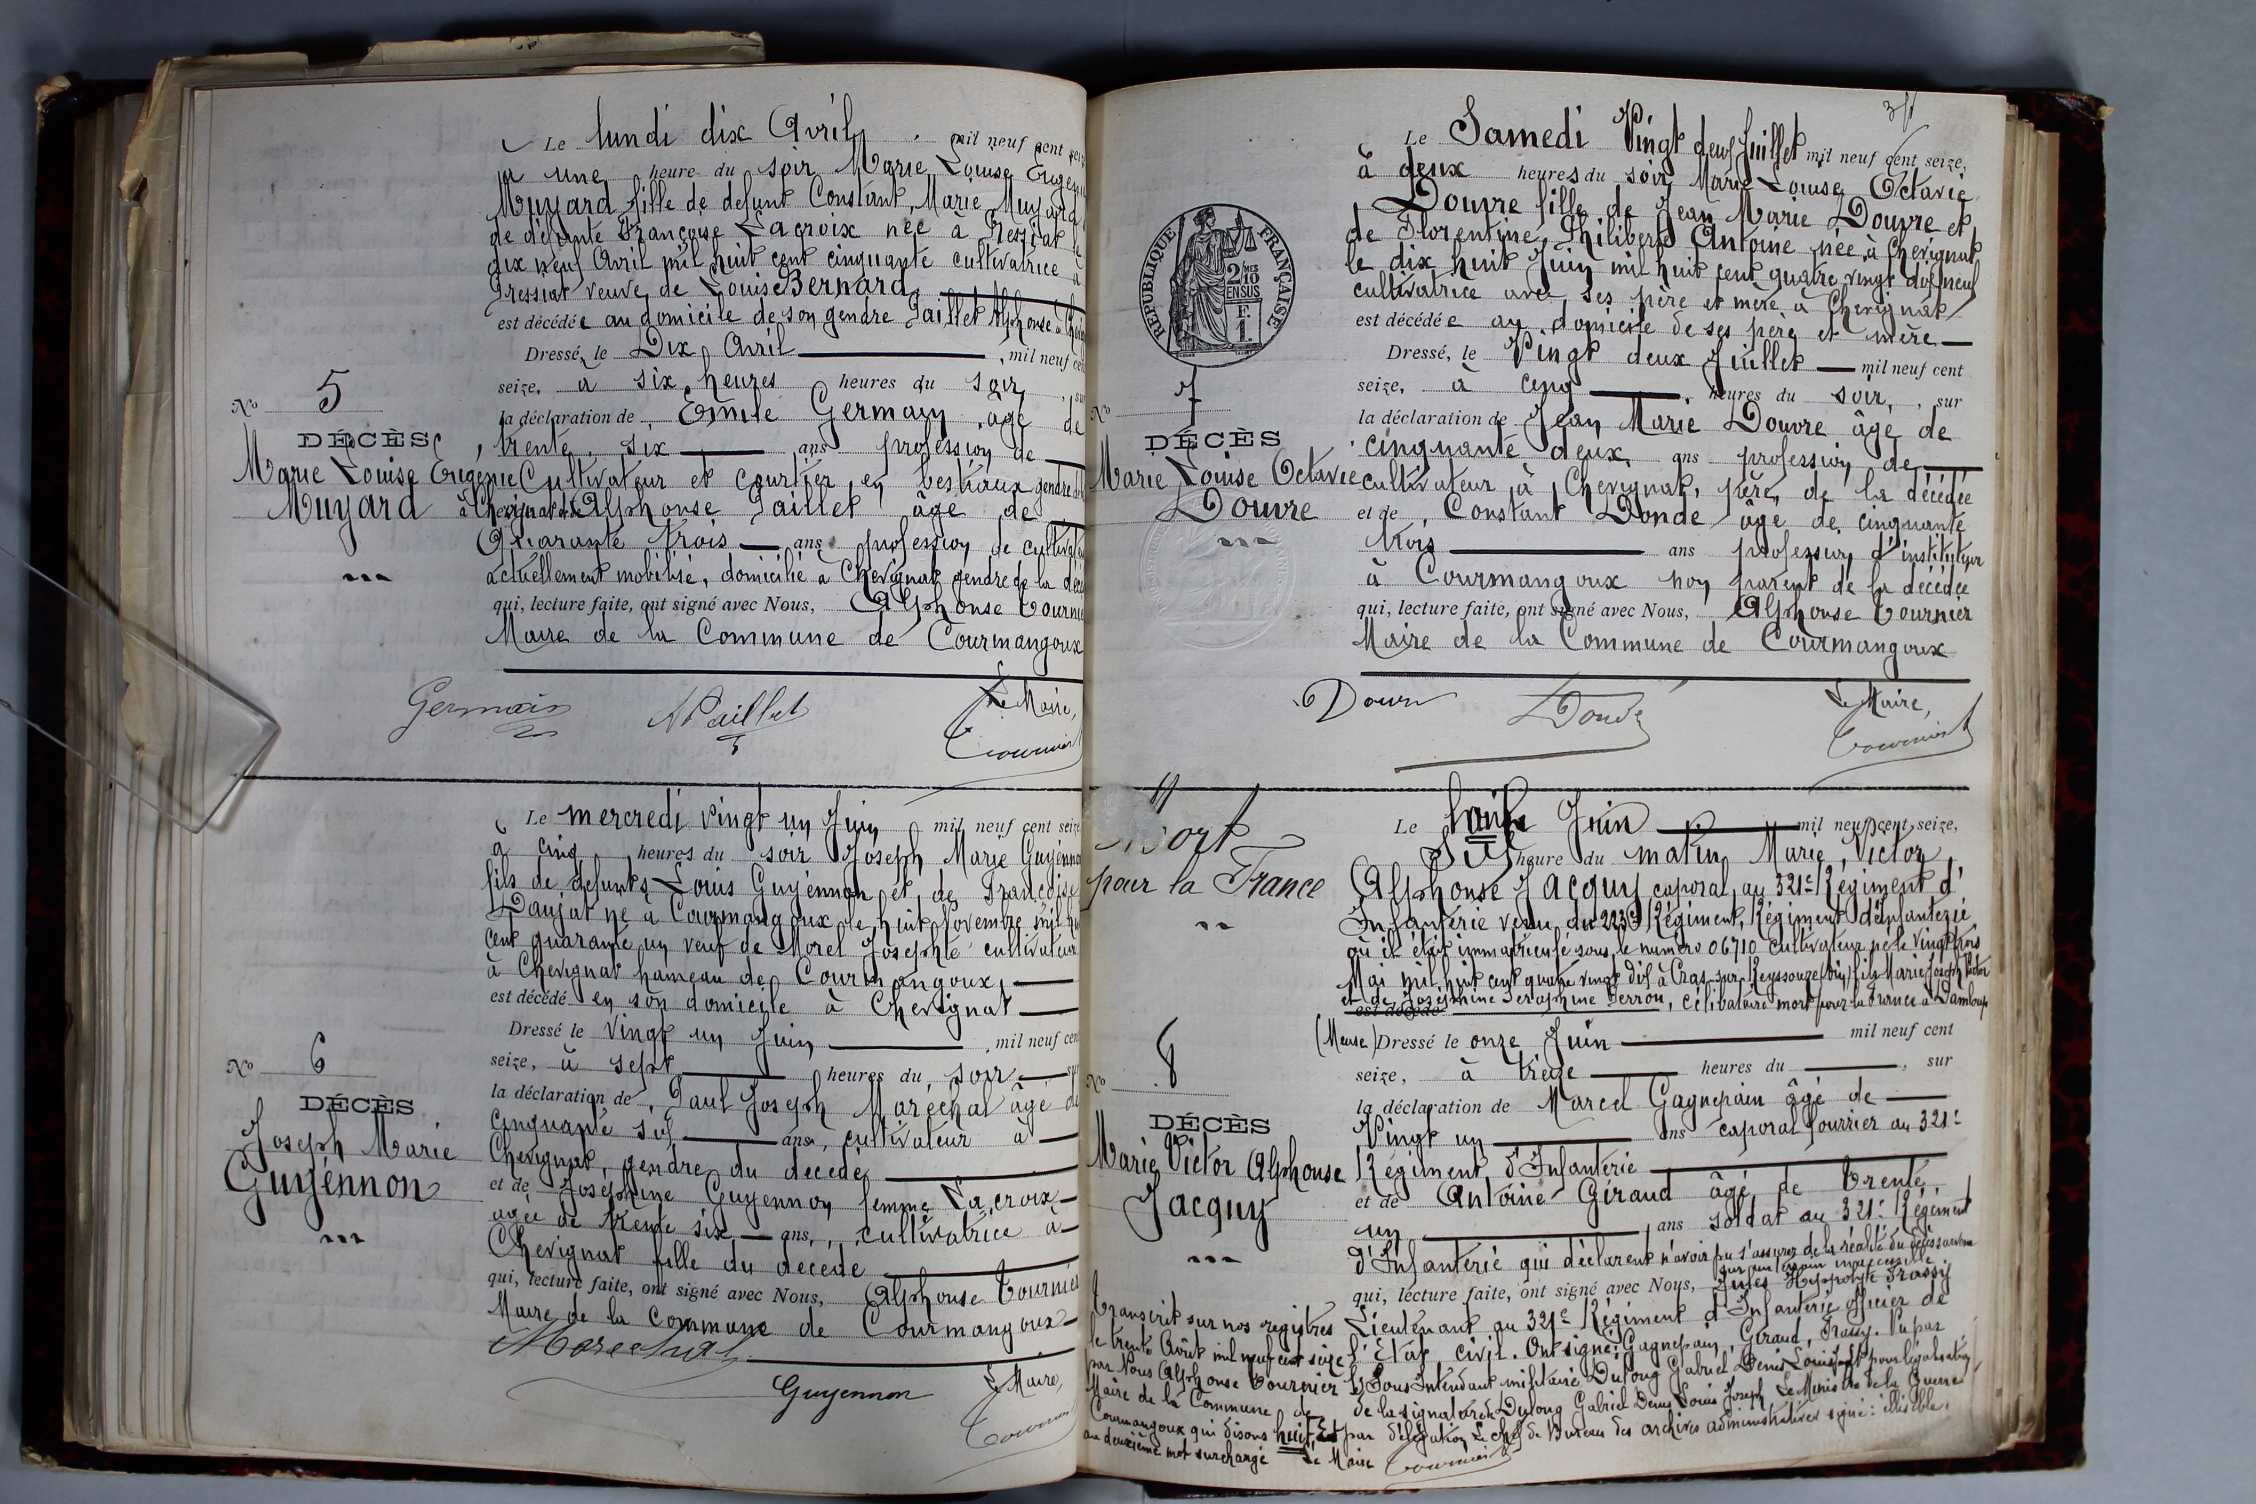 Le lundi dix Avril mil neuf cent seize
à une heure du soir Marie Louise Eugénie
Muyard fille de défunt Constant, Marie Muyard
de défunte Françoise Lacroix née à Pressiat le
dix neuf Avril mil huit cent cinquante cultivatrice à
Pressiat veuve de Louis Bernard
est décédée au domicile de son gendre Paillet Alphonse à
Dressé, le Dix Avril , mil neuf cent
seize, à six heures heures du soir , sur
la déclaration de Emile Germain âgé de
trente six ans profession de
Cultivateur et courtier en bestiaux gendre
à Chevignat et de Alphonse Paillet âgé de
Quarante trois ans profession de cultivateur
actuellement mobilisé, domicilié à Chevignat gendre de la
qui, lecture faite, ont signé avec Nous, Alphonse Tournier
Maire de la Commune de Courmangoux
No 5
DÉCÈS
Marie Louise Eugénie
Muyard
Germain APaillet Le Maire,
Tournier
Le mercredi vingt un Juin mil neuf cent seize
à cinq heures du soir Joseph Marie Guyénnon
fils de défunts Louis Guyénnon et de Françoise
Daujat né à Courmangoux le huit Novembre mil huit
cent quarante un veuf de Morel Josephte cultivateur
à Chevignat hameau de Courmangoux
est décédé en son domicile à Chevignat
Dressé le vingt un Juin , mil neuf cent
seize, à sept heures du soir sur
la déclaration de Paul Joseph Maréchal âgé de
Cinquante six ans, cultivateur à
Chevignat, gendre du décédé
et de Joséphine Guyennon femme Lacroix
âgée de trente six ans, cultivatrice à
Chevignat fille du décédé
qui, lecture faite, ont signé avec Nous, Alphonse Tournier
Maire de la Commune de Courmangoux
No 6
DÉCÈS
Joseph Marie
Guyénnon
Marechal
Guyennon Le Maire,
Tournier
Le Samedi Vingt deux Juillet mil neuf cent seize,
à deux heures du soir Marie Louise Octavie
Douvre fille de Jean Marie Douvre et
de Florentine, Philiberte Antoine née à Chevignat
le dix huit Juin mil huit cent quatre vingt dix neuf
cultivatrice avec ses père et mère à Chevignat
est décédée au domicile de ses père et mère
Dressé, le Vingt deux Juillet mil neuf cent
seize, à cinq heures du soir, , sur
la déclaration de Jean Marie Douvre âgé de
cinquante deux ans profession de
cultivateur à Chevignat, père de la décédée
et de Constant Donde âgé de cinquante
trois ans profession d'instituteur
à Courmangoux non parent de la décédée
qui, lecture faite, ont signé avec Nous, Alphonse Tournier
Maire de la Commune de Courmangoux
RÉPUBLIQUE FRANÇAISE
2 MES
10
EN SUS
F.
1.
No 7
DÉCÈS
Marie Louise Octavie
Douvre
Douvr Dondé Le Maire,
Tournier
Mort
pour la France
Le huit Juin mil neuf cent seize,
Six heure du matin Marie, Victor,
Alphonse Jacquy caporal au 321e Régiment d'
Infanterie venu du 223e Régiment, Régiment d'Infanterie
où il était immatriculé sous le numéro 06710 cultivateur né le vingt trois
Mai mil huit cent quatre vingt dix à Cras-sur-Reyssouze (Ain) fils Marie Joseph Victor
et de Joséphine Séraphine Perron, célibataire mort pour la France à Damloup
est décédé
(Meuse) Dressé le onze Juin mil neuf cent
seize, à treize heures du , sur
la déclaration de Marcel Gagnepain âgé de
Vingt un ans caporal fourrier au 321e
Régiment d'Infanterie
et de Antoine Giraud âgé de trente
un ans soldat au 321e Régiment
d'Infanterie qui déclarent n'avoir pu s'assurer de la réalité du décès survenu
sur un terrain inaccessible
qui, lecture faite, ont signé avec Nous, Jules Hyppolyte Frassy
Lieutenant au 321e Régiment d'Infanterie officier de
l'Etat civil. Ont signé: Gagnepain, Giraud, Frassy. Vu par
le Sous Intendant militaire Dufong Gabriel Denis Louis pour légalisation
de la signature de Dufong Gabriel Denis Louis Joseph Le Ministre de la Guerre
Et par délégation Le Chef de Bureau des archives administratives signé: illisible.
No 8
DÉCÈS
Marie Victor Alphonse
Jacquy
Transcrit sur nos registres
le trente Août mil neuf cent seize
par Nous Alphonse Tournier
Maire de la Commune de
Courmangoux qui disons huit
au deuxième mot surchargé
Le Maire Tournier